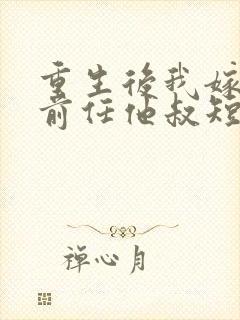 重生後我嫁
前任他叔短
禪心月